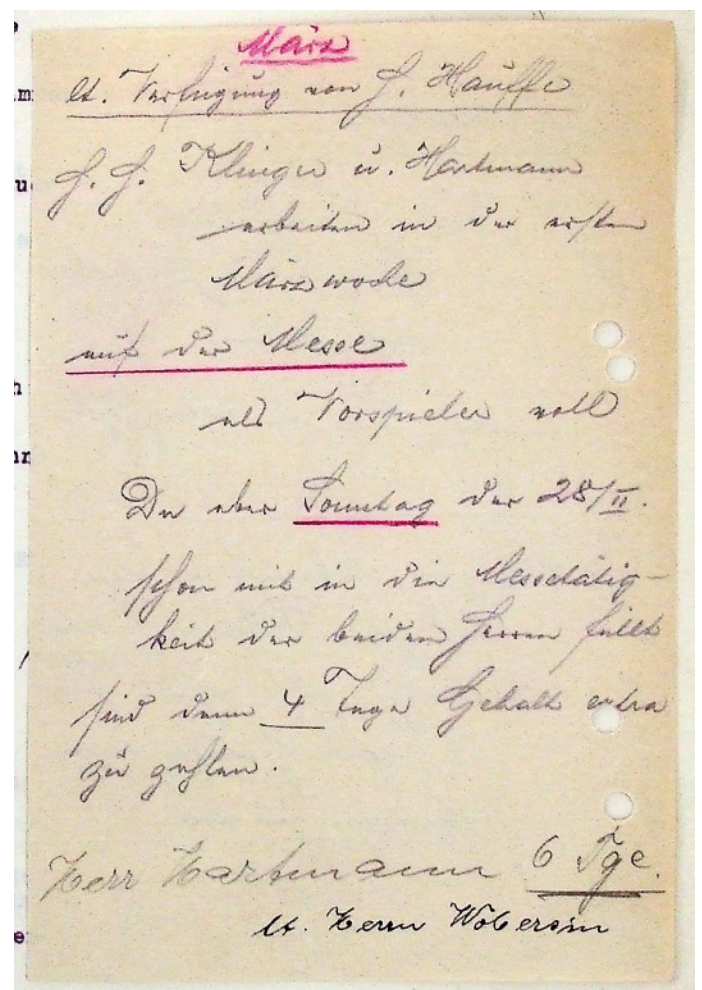 März
lt. Verfügung von H. Hauffe
H. H. Klinger u. Hartmann
arbeiten in der ersten
Märzwoche
auf der Messe
als Vorspieler voll
Da aber Sonntag der 28/II.
schon mit in die Messetätig-
keit der beiden Herren fällt
sind dann 4 Tage Gehalt extra
zu zahlen.
Herr Hartmann 6 Tge.
lt. Herrn Wobersin